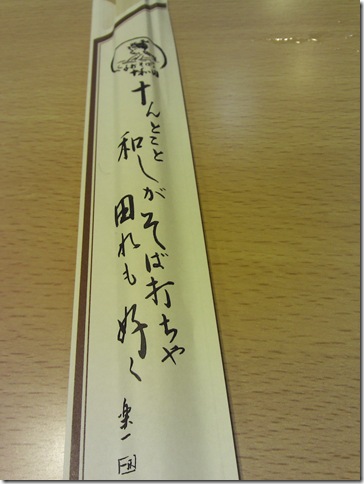 十んとこと
和しがそば打ちゃ
田れも好く
楽一